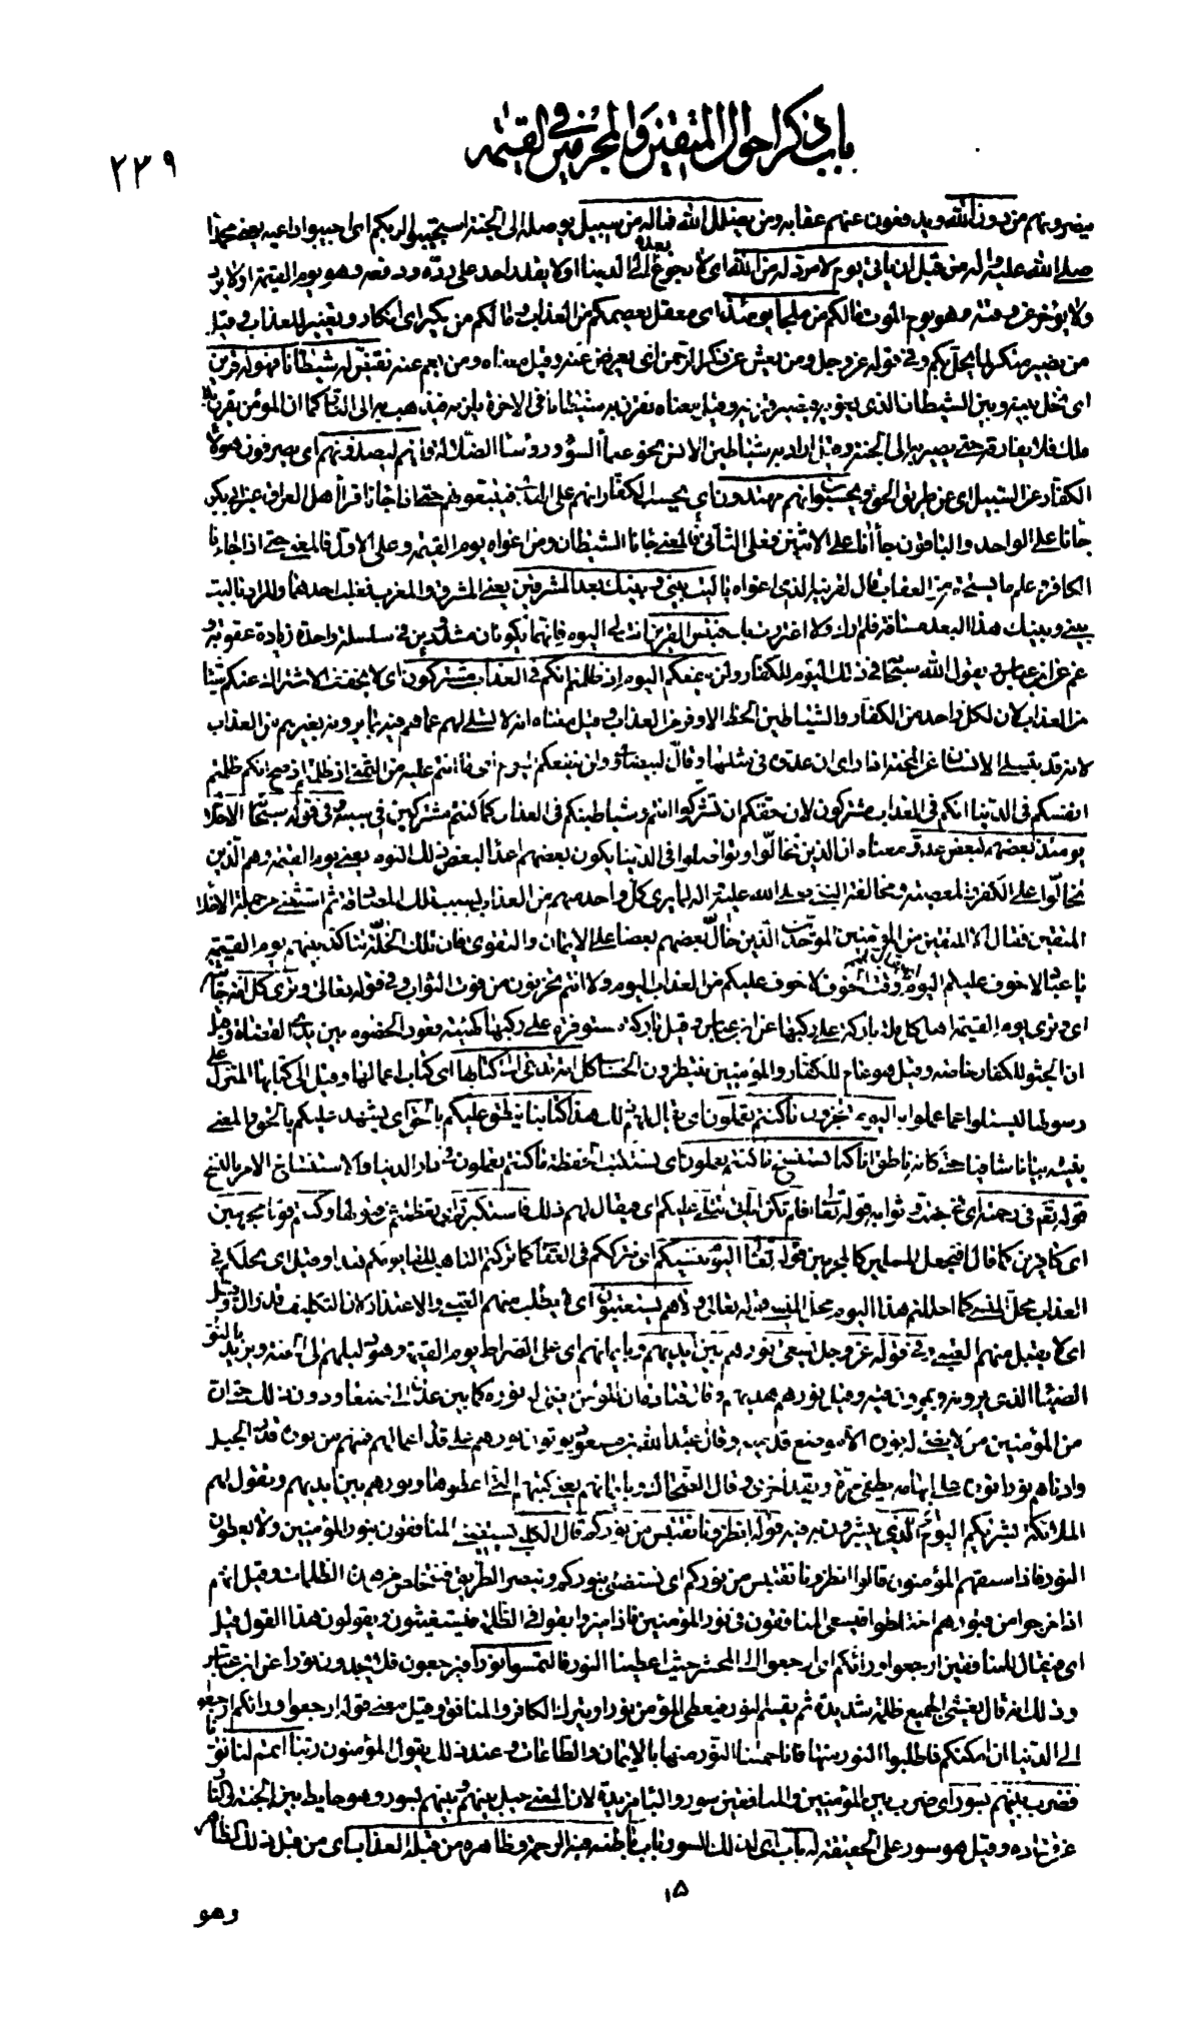 باب ذكر احوال المتقين والمجرمين في القيمة
٢٣٩
ينصرونهم من دون الله ويدفعون عنهم عقابه ومن يضلل الله فما له من سبيل يوصله الى الجنة استجيبوا لربكم اى اجيبوا داعيه يعنى محمدا
صلى الله عليه واله من قبل ان ياتى يوم لا مرد له من الله اى لا رجوع بعده الى الدنيا او لا يقدر احد على رده ودفعه وهو يوم القيمة او لا يرد
ولا يؤخر عن وقته وهو يوم الموت ما لكم من ملجأ يومئذ اى معقل يعصمكم من العذاب وما لكم من نكير اى انكار وتغيير للعذاب وقيل
من نصير منكر لما يحل بكم وفى قوله عز وجل ومن يعش عن ذكر الرحمن اى يعرض عنه وقيل معناه ومن يعم عنه نقيض له شيطانا فهو له قرين
اى نخل بينه وبين الشيطان الذى يغويه فيصير قرينه وقيل معناه نقرن به شيطانا فى الاخرة يلزمه فيذهب به الى النار كما ان المؤمن يقرن به
ملك فلا يفارقه حتى يصير به الى الجنة وقيل اراد به شياطين الانس نحو علماء السوء ورؤساء الضلالة وانهم ليصدونهم اى يصرفون هؤلاء
الكفار عن السبيل اى عن طريق الحق ويحسبون انهم مهتدون اى يحسب الكفار انهم على الهدى فيتبعونهم حتى اذا جاءنا قرأ اهل العراق غير ابى بكر
جاءنا على الواحد والباقون جاءانا على الاثنين فعلى الثانى فالمعنى جاءنا الشيطان ومن اغواه يوم القيمة وعلى الاول فالمعنى حتى اذا جاءنا
الكافر وعلم ما يستحقه من العقاب قال لقرينه الذى اغواه يا ليت بينى وبينك بعد المشرقين يعنى المشرق والمغرب فغلب احدهما والمراد يا ليت
بينى وبينك هذا البعد مسافة فلم ارك ولا اغتررت بك فبئس القرين انت لى اليوم فانهما يكونان مشدودين فى سلسلة واحدة زيادة عقوبة و
غم عن ابن عباس ويقول الله سبحانه فى ذلك اليوم للكفار ولن ينفعكم اليوم اذ ظلمتم انكم فى العذاب مشتركون اى لا يخفف الاشتراك عنكم شيئا
من العذاب لان لكل واحد من الكفار والشياطين الحظ الاوفر من العذاب وقيل معناه انه لا تسلى لهم عما هم فيه بما يرونه بغيرهم من العذاب
لانه قد يتسلى الانسان عن المحنة اذا راى ان عدوه فى مثلها وقال البيضاوى ولن ينفعكم اليوم اى ما انتم عليه من التمنى اذ ظلمتم اذ صح انكم ظلمتم
انفسكم فى الدنيا انكم فى العذاب مشتركون لان حقكم ان تشتركوا انتم وشياطينكم فى العذاب كما كنتم مشتركين فى سببه وفى قوله سبحانه الاخلاء
يومئذ بعضهم لبعض عدو معناه ان الذين تخالوا وتواصلوا فى الدنيا يكون بعضهم اعداء لبعض ذلك اليوم يعنى يوم القيمة وهم الذين
تخالوا على الكفر والمعصية ومخالفة النبى صلى الله عليه واله لما يرى كل واحد منهم من العذاب بسبب تلك المصادقة ثم استثنى من جملة الاخلاء
المتقين فقال الا المتقين من المؤمنين الموحدين الذين خال بعضهم بعضا على الايمان والتقوى فان تلك الخلة تتاكد بينهم يوم القيمة
يا عباد لا خوف عليكم اليوم اى يقال لهم وقت الخوف لا خوف عليكم من العذاب اليوم ولا انتم تحزنون من فوت الثواب وفى قوله تعالى وترى كل امة جاثية
اى وترى يوم القيمة اهل كل ملة باركة على ركبها عن ابن عباس وقيل باركة مستوفزة على ركبها كهيئة قعود الخصوم بين يدى القضاة وقيل
ان الجثو للكفار خاصة وقيل هو عام للكفار والمؤمنين ينتظرون الحساب كل امة تدعى الى كتابها اى كتاب اعمالها وقيل الى كتابها المنزل على
رسولها ليسئلوا عما عملوا به اليوم تجزون ما كنتم تعملون اى يقال لهم ذلك هذا كتابنا ينطق عليكم بالحق اى يشهد عليكم بالحق والمعنى
يبينه بيانا شافيا حتى كانه ناطق انا كنا نستنسخ ما كنتم تعملون اى نستكتب الحفظة ما كنتم تعملون فى دار الدنيا والاستنساخ الامر بالنسخ
قوله تعالى فى رحمته اى فى جنته وثوابه قوله تعالى افلم تكن اياتى تتلى عليكم اى فيقال لهم ذلك فاستكبرتم اى تعظمتم عن قبولها وكنتم قوما مجرمين
اى كافرين كما قال افنجعل المسلمين كالمجرمين قوله تعالى اليوم ننسيكم اى نترككم فى العقاب كما تركتم التاهب للقاء يومكم هذا وقيل اى نحلكم فى
العذاب محل المنسى كما احللتم هذا اليوم محل المنسى قوله تعالى ولا هم يستعتبون اى لا يطلب منهم العتبى والاعتذار لان التكليف قد زال وقيل
اى لا يقبل منهم العتبى وفى قوله عز وجل يسعى نورهم بين ايديهم وبايمانهم اى على الصراط يوم القيمة وهو دليلهم الى الجنة ويريد بالنور
الضياء الذى يرونه ويمرون فيه وقيل نورهم هديهم وقال قتادة ان المؤمن يضئ له نوره كما بين عدن الى صنعاء ودون ذلك حتى ان
من المؤمنين من لا يضئ له نوره الا موضع قدميه وقال عبد الله بن مسعود يؤتون نورهم على قدر اعمالهم فمنهم من نوره مثل الجبل
وادناهم نورا نوره على ابهامه يطفئ مرة ويقد اخرى وقال الضحاك وبايمانهم يعنى كتبهم التى اعطوها ونورهم بين ايديهم وتقول لهم
الملائكة بشريكم اليوم الذى يبشرون به فيه قوله انظرونا نقتبس من نوركم قال الكلبى يستضئ المنافقون بنور المؤمنين ولا يعطون
النور فاذا سبقهم المؤمنون قالوا انظرونا نقتبس من نوركم اى نستضئ بنوركم ونبصر الطريق فنتخلص من هذه الظلمات وقيل انهم
اذا خرجوا من قبورهم اختلطوا فيسعى المنافقون فى نور المؤمنين فاذا ميزوا بقوا فى الظلمة فيستغيثون ويقولون هذا القول قيل
اى فيقال للمنافقين ارجعوا ورائكم اى ارجعوا الى المحشر حيث اعطينا النور فالتمسوا نورا فيرجعون فلا يجدون نورا عن ابن عباس
وذلك انه قال يغشى الجميع ظلمة شديدة ثم يقسم النور فيعطى المؤمن نورا ويترك الكافر والمنافق وقيل معنى قوله ارجعوا ورائكم ارجعوا
الى الدنيا ان امكنكم فاطلبوا النور منها فانا حملنا النور منها بالايمان والطاعات وعند ذلك يقول المؤمنون ربنا اتمم لنا نورنا
فضرب بينهم بسور اى ضرب بين المؤمنين والمنافقين سور والباء مزيدة لان المعنى حيل بينهم وبينهم بسور وهو حايط بين الجنة والنار
عن قتادة وقيل هو سور على الحقيقة له باب اى لذلك السور باب باطنه فيه الرحمة وظاهره من قبله العذاب اى من قبل ذلك الظاهر
١٥
وهو